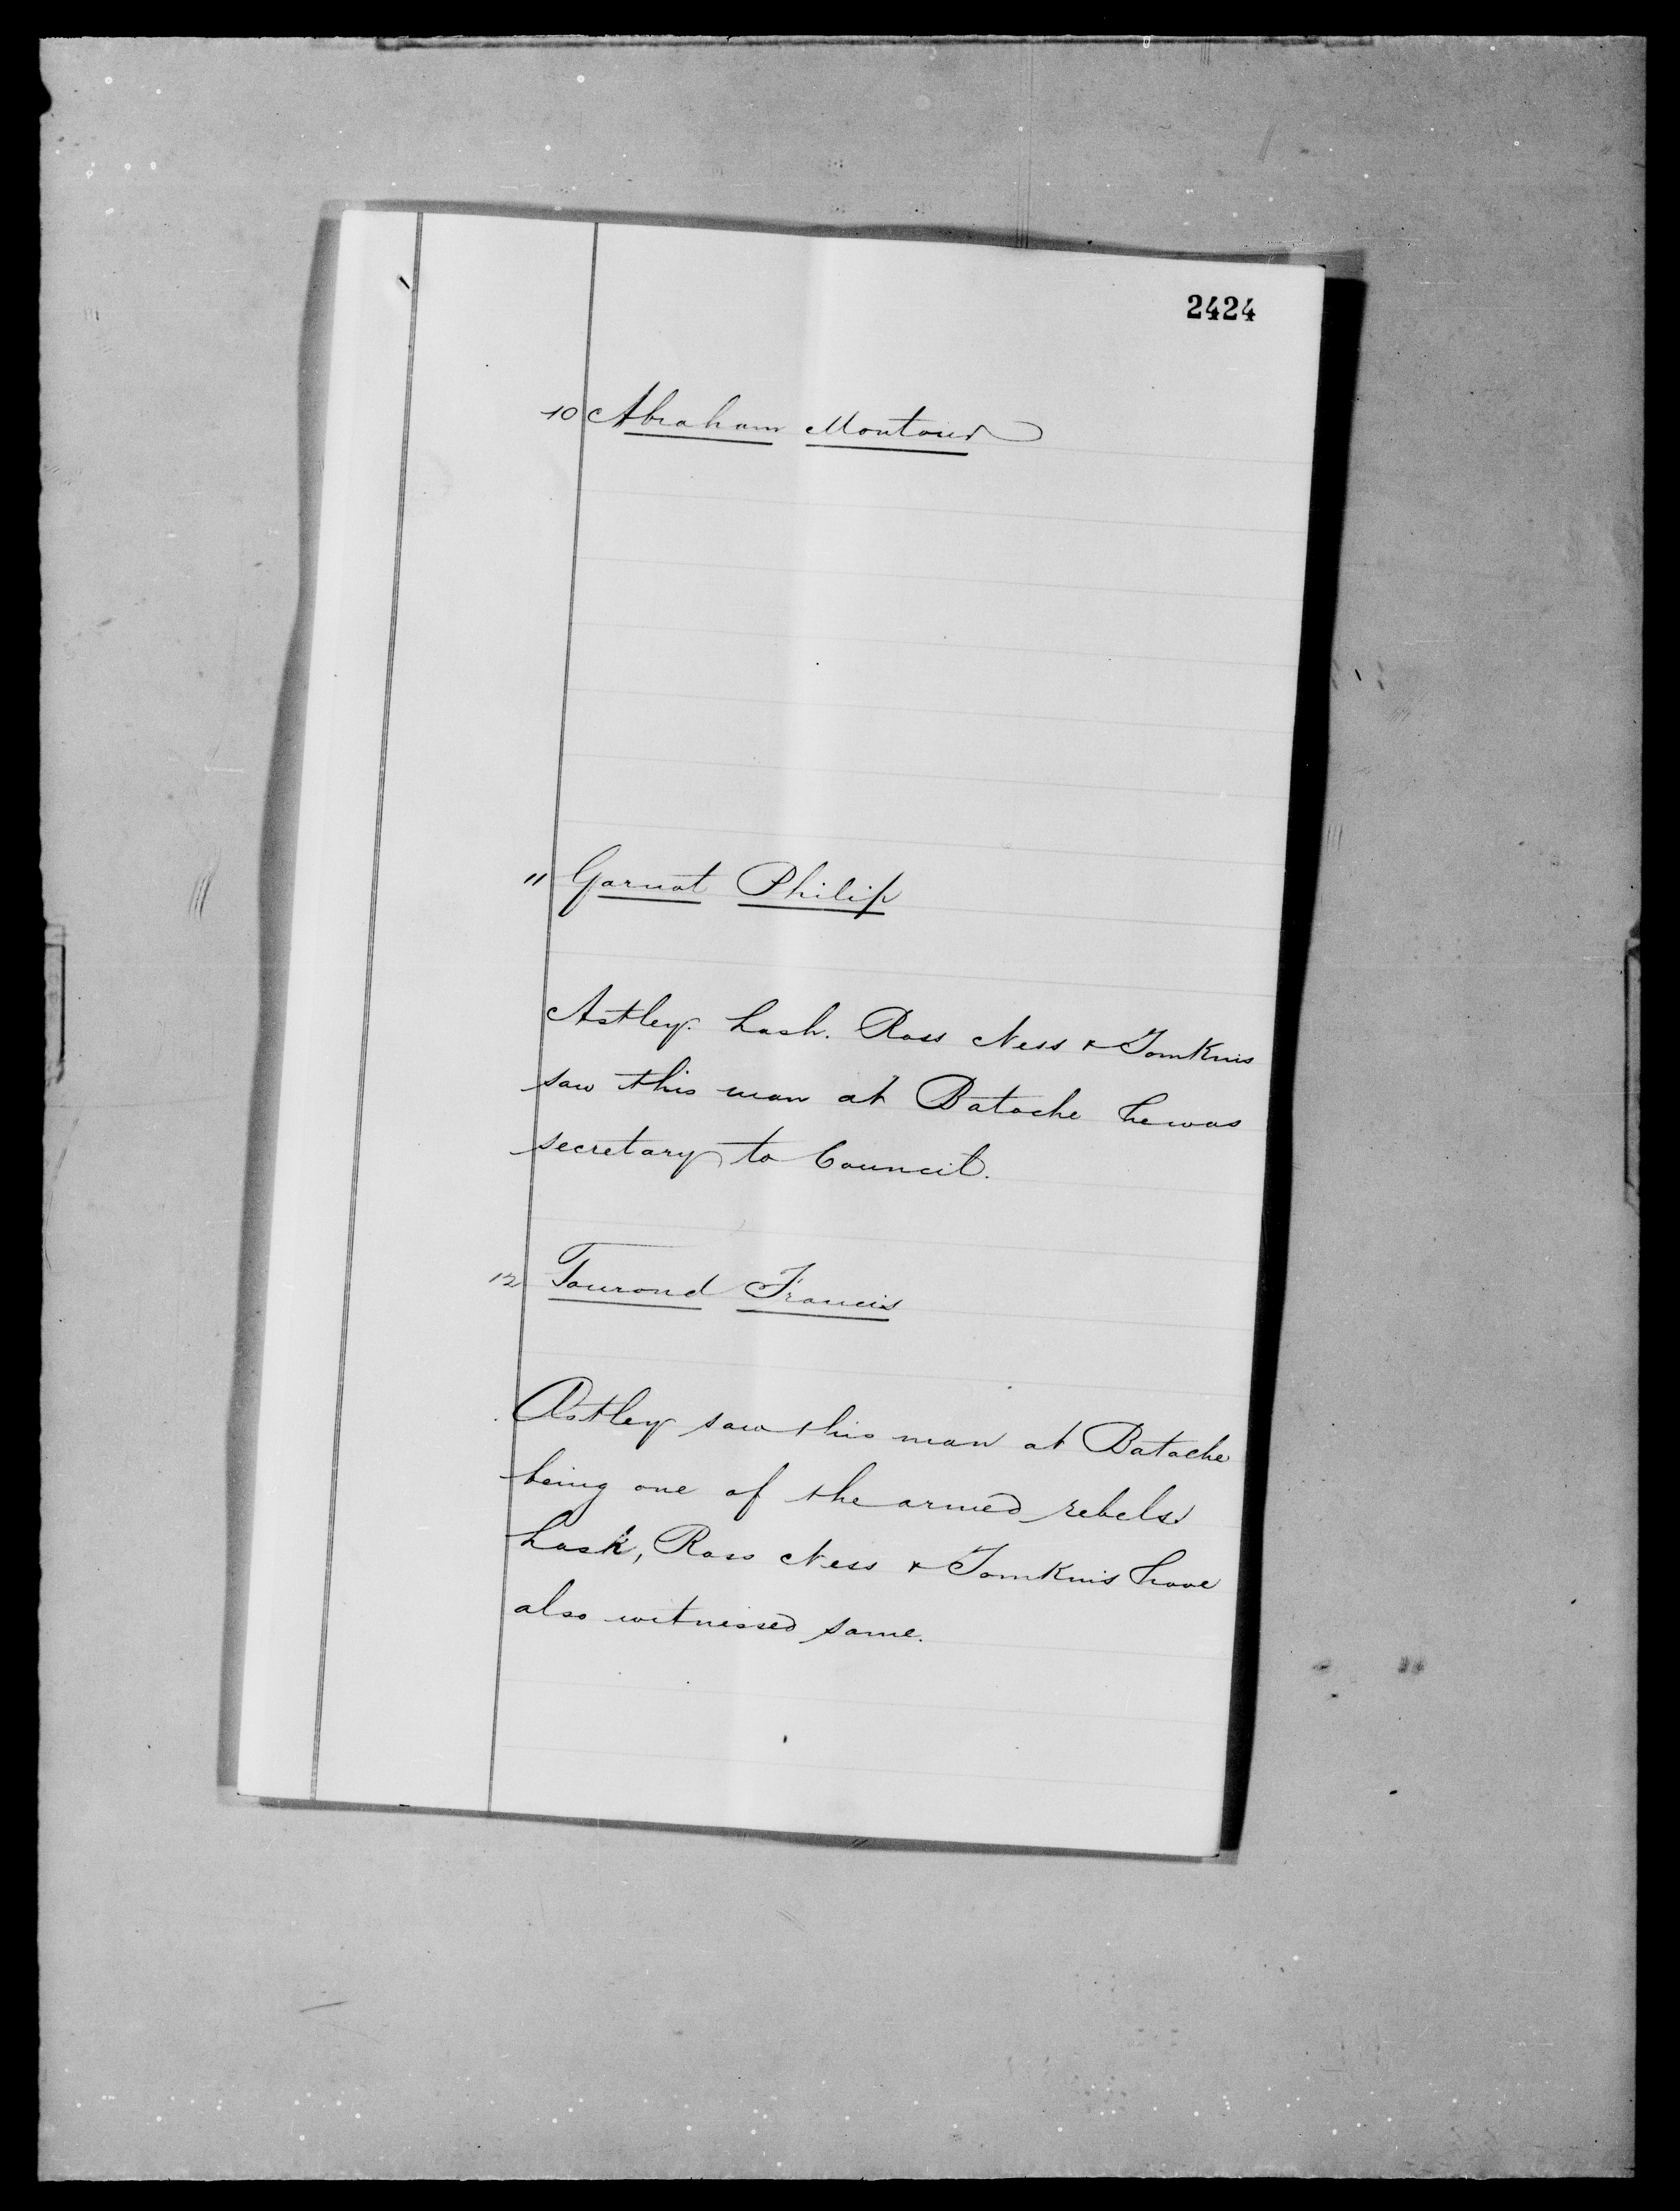 2424
10 Abraham Montour
11 Garnot Philip
Astley. Lash. Ross Ness & Tomkins
saw this man at Batoche he was
secretary to Council.
12 Tourond Francis
Astley saw this man at Batoche
being one of the armed rebels
Lash, Ross Ness & Tomkins have
also witnessed same.